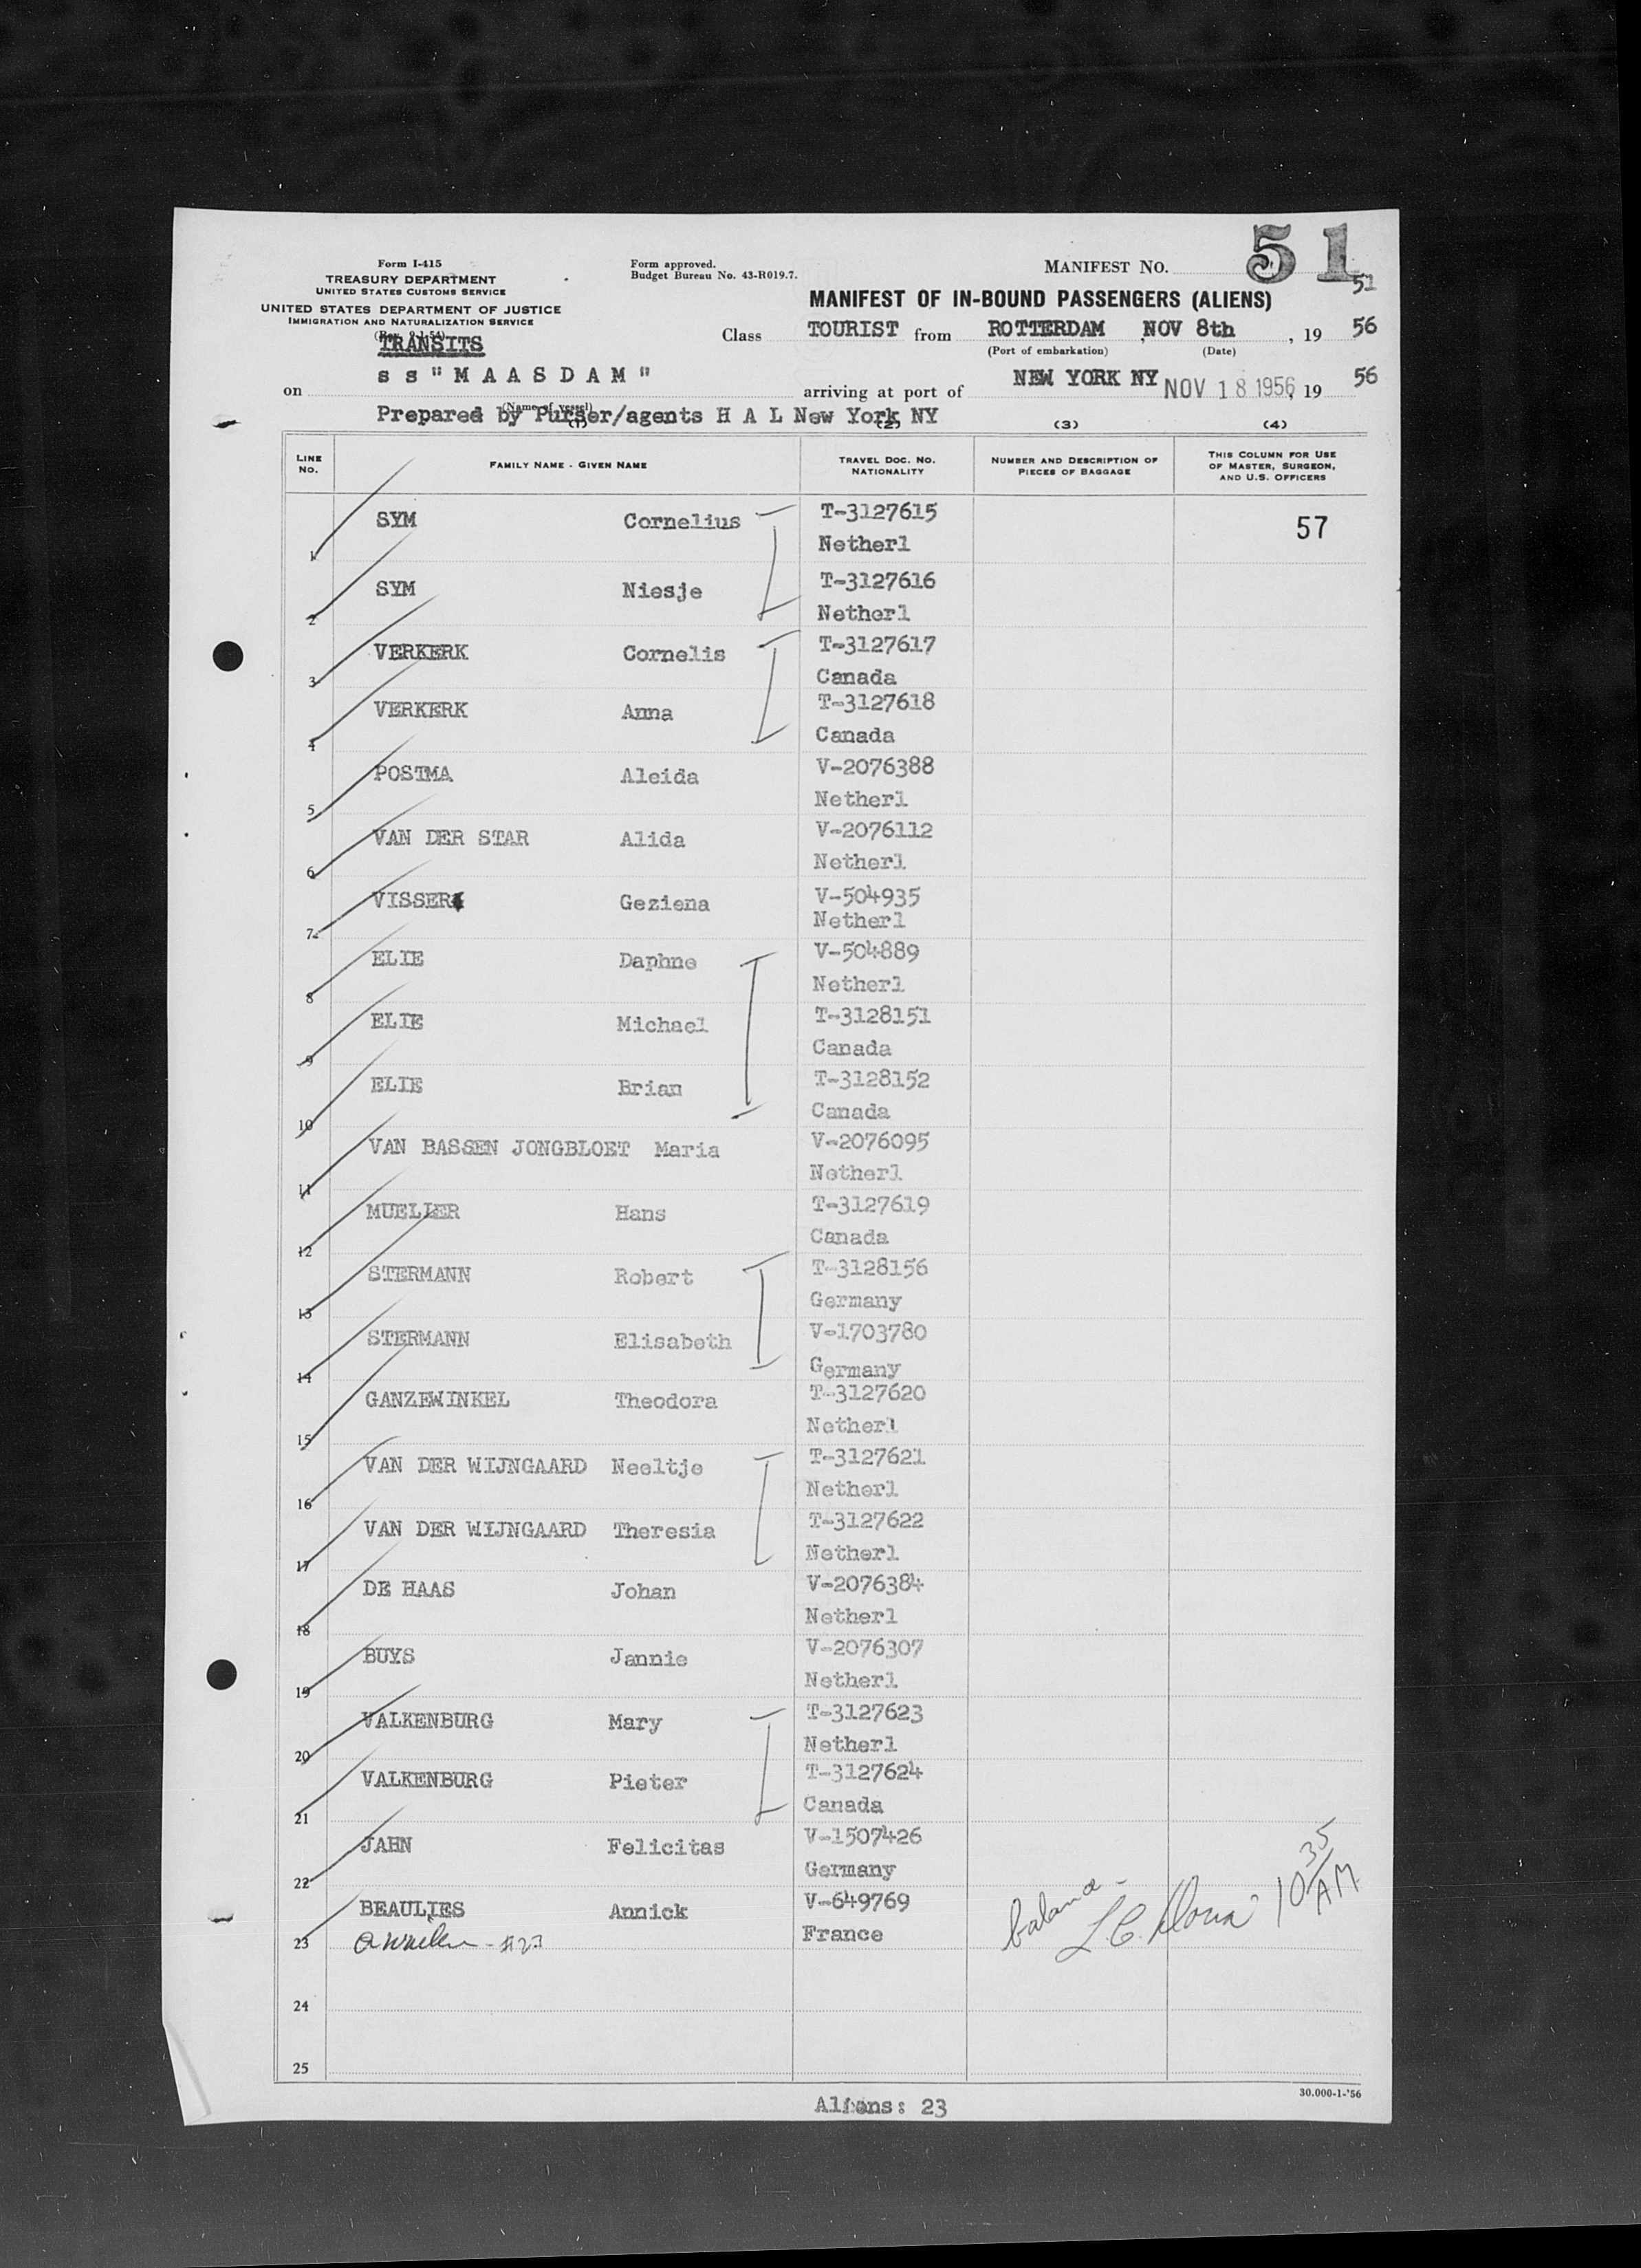 51
Form I-415
TREASURY DEPARTMENT
UNITED STATES CUSTOMS SERVICE
UNITED STATES DEPARTMENT OF JUSTICE
IMMIGRATION AND NATURALIZATION SERVICE
(Rev. 9-1-54)
TRANSITS
Form approved.
Budget Bureau No. 43-R019.7.
MANIFEST NO.
51
MANIFEST OF IN-BOUND PASSENGERS (ALIENS)
Class TOURIST from ROTTERDAM , NOV 8th , 19 56
(Port of embarkation) (Date)
on s s "M A A S D A M" arriving at port of NEW YORK NY NOV 18 1956, 19 56
(Name of vessel)
Prepared by Purser/agents H A L New York NY
(1) (2) (3) (4)
LINE NO. FAMILY NAME - GIVEN NAME TRAVEL DOC. NO. NATIONALITY NUMBER AND DESCRIPTION OF PIECES OF BAGGAGE THIS COLUMN FOR USE OF MASTER, SURGEON, AND U.S. OFFICERS
1 SYM Cornelius T-3127615 57
Netherl
2 SYM Niesje T-3127616
Netherl
3 VERKERK Cornelis T-3127617
Canada
4 VERKERK Anna T-3127618
Canada
5 POSTMA Aleida V-2076388
Netherl
6 VAN DER STAR Alida V-2076112
Netherl
7 VISSER Geziena V-504935
Netherl
8 ELIE Daphne V-504889
Netherl
9 ELIE Michael T-3128151
Canada
10 ELIE Brian T-3128152
Canada
11 VAN BASSEN JONGBLOET Maria V-2076095
Netherl
12 MUELLER Hans T-3127619
Canada
13 STERMANN Robert T-3128156
Germany
14 STERMANN Elisabeth V-1703780
Germany
15 GANZEWINKEL Theodora T-3127620
Netherl
16 VAN DER WIJNGAARD Neeltje T-3127621
Netherl
17 VAN DER WIJNGAARD Theresia T-3127622
Netherl
18 DE HAAS Johan V-2076384
Netherl
19 BUYS Jannie V-2076307
Netherl
20 VALKENBURG Mary T-3127623
Netherl
21 VALKENBURG Pieter T-3127624
Canada
22 JAHN Felicitas V-1507426
Germany
23 BEAULIES Annick V-649769
France
#23
L.C. 10 35 AM
24
25
30.000-1-'56
Aliens: 23